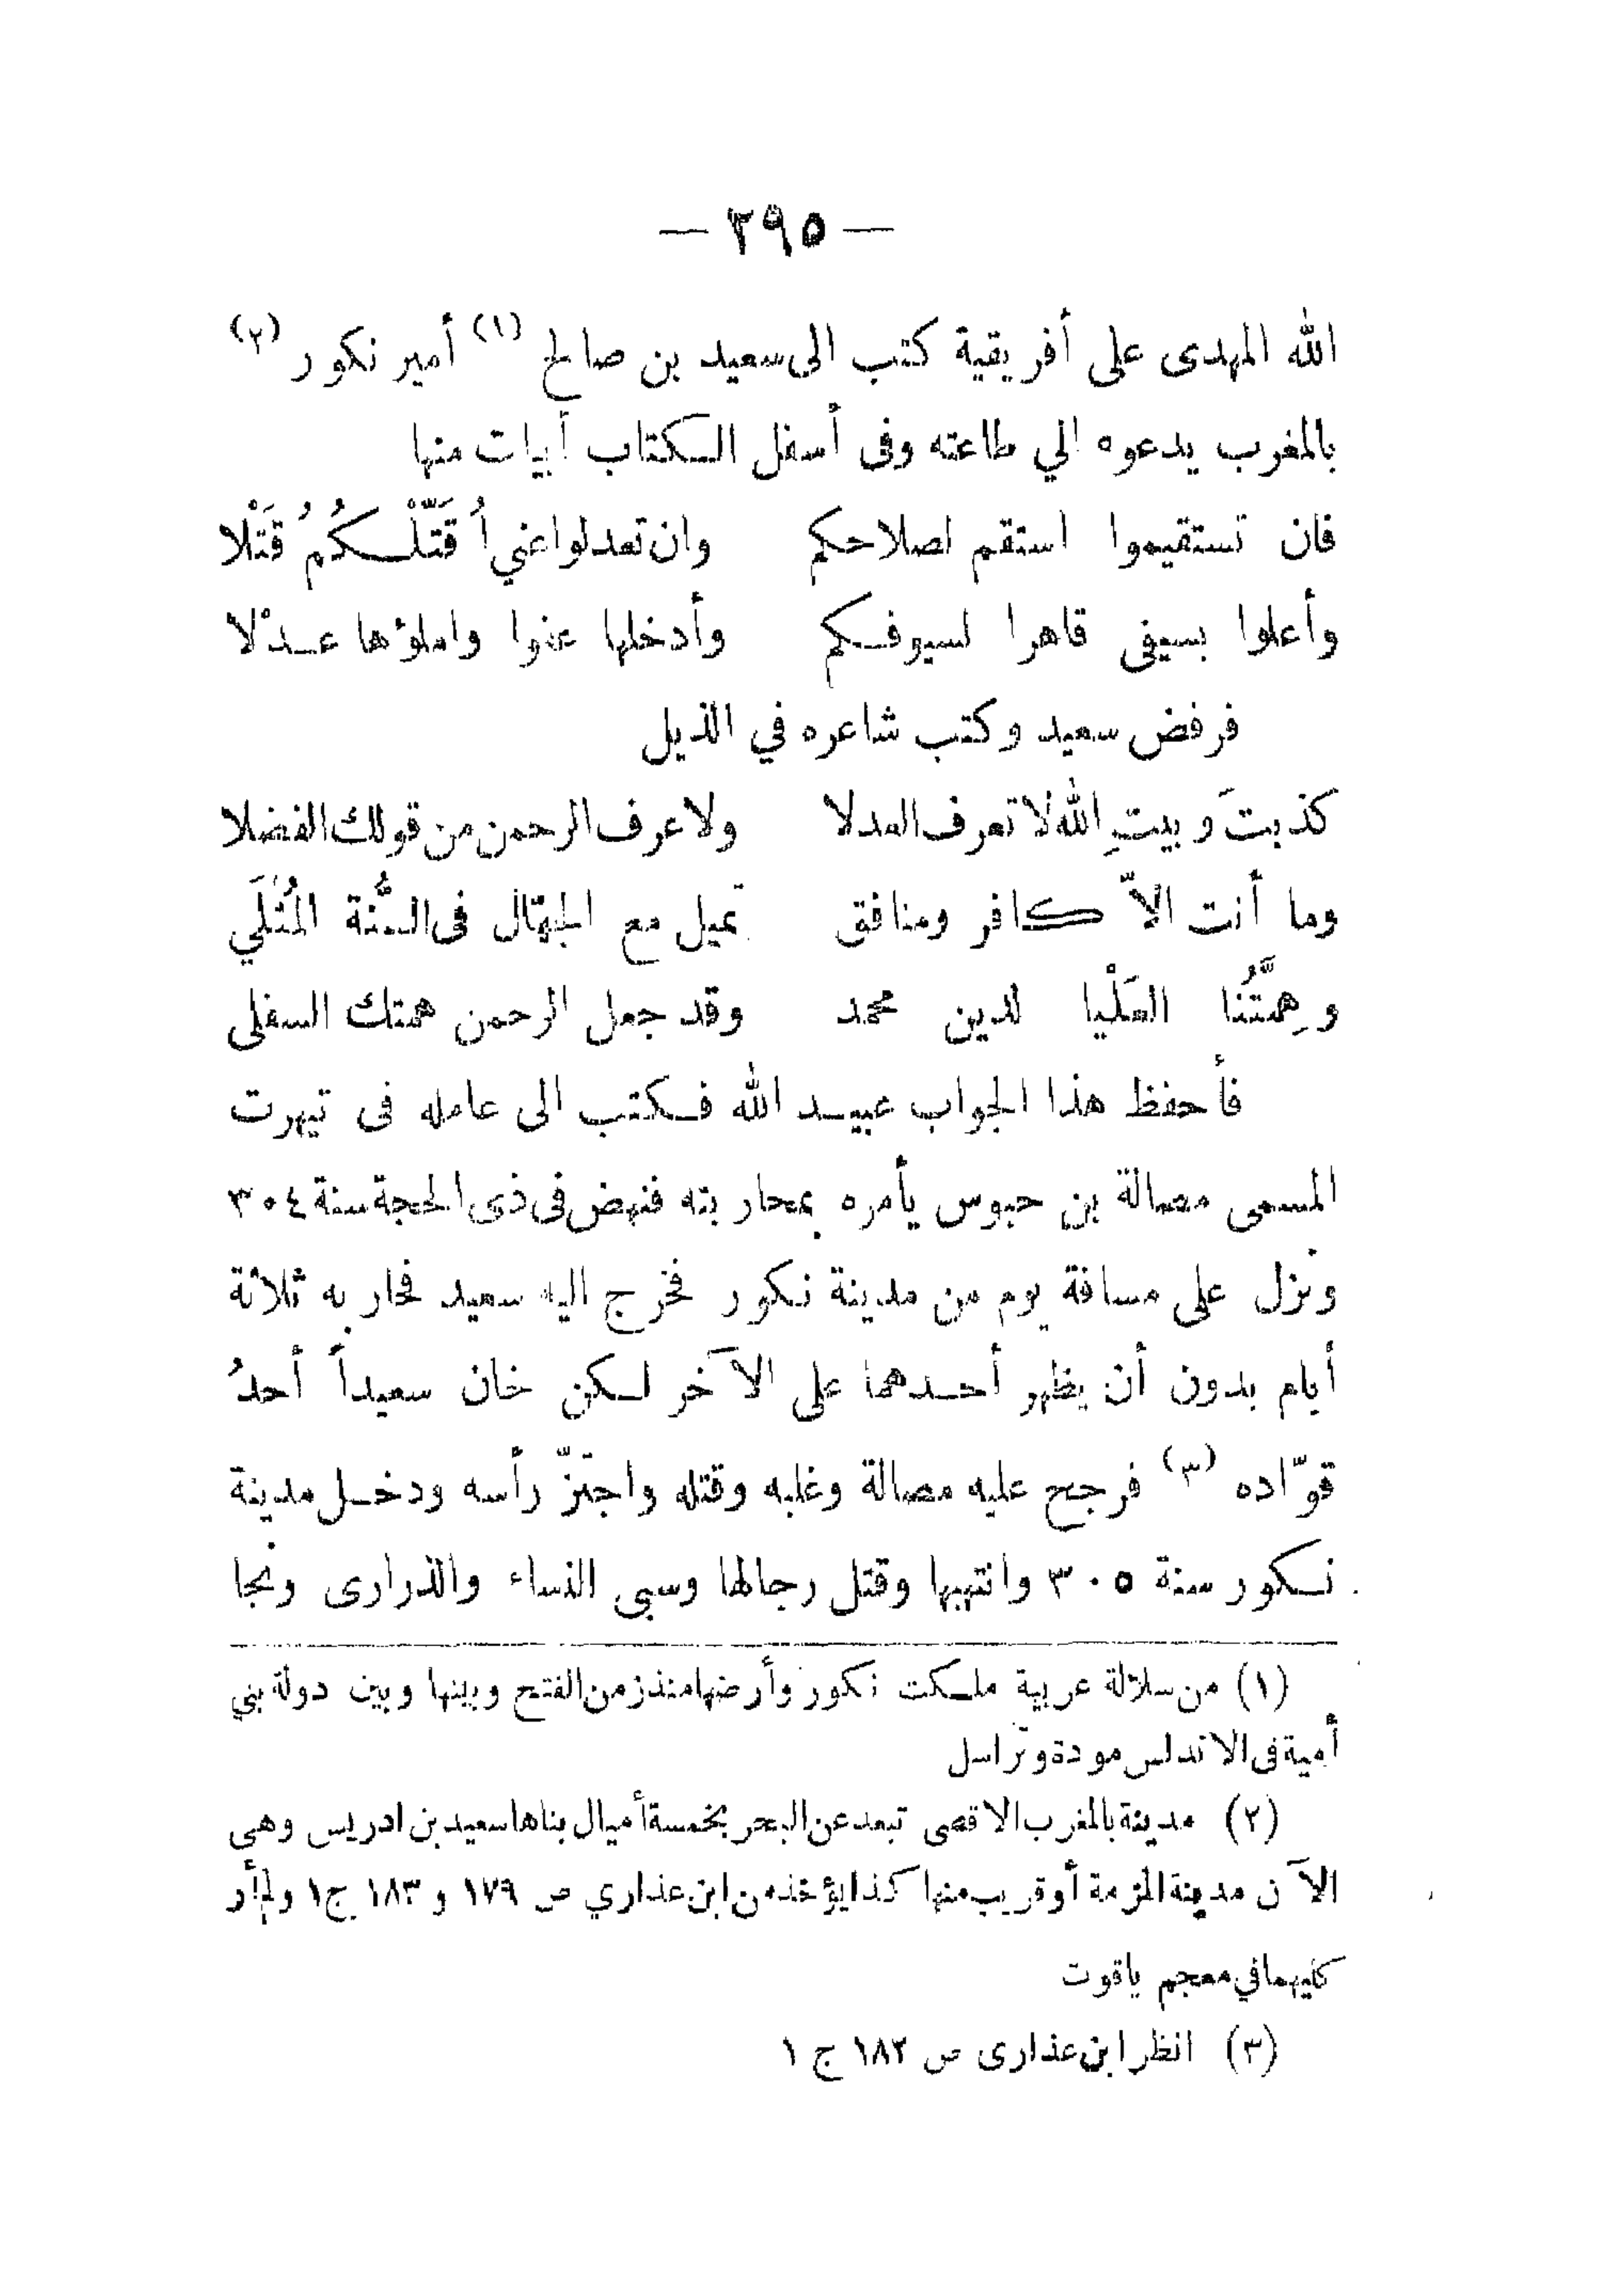 — ٢٩٥ —
الله المهدى على أفريقية كتب الى سعيد بن صالح (١) أمير نكور (٢)
بالمغرب يدعوه الي طاعته وفى أسفل الكتاب أبيات منها
فان تستقيموا استقم لصلاحكم وان تعدلوا عني أُقَتِّلْكُمُ قَتْلا
وأعلوا بسيفى قاهرا لسيوفكم وأدخلها عنوا واملؤها عدْلا
فرفض سعيد وكتب شاعره في الذيل
كذبتَ وبيتِ الله لا تعرف العدلا ولا عرف الرحمن من قولك الفضلا
وما أنت الاّ كافر ومنافق تميل مع الجهّال فى السُّنة المُثلَي
وهِمَّتُنا العَلْيا لدين محمد وقد جعل الرحمن همتك السفلى
فأحفظ هذا الجواب عبيد الله فكتب الى عامله فى تيهرت
المسمى مصالة بن حبوس يأمره بمحاربته فنهض فى ذى الحجة سنة ٣٠٤
ونزل على مسافة يوم من مدينة نكور فخرج اليه سعيد فحاربه ثلاثة
أيام بدون أن يظهر أحدهما على الآخر لكن خان سعيداً أحدُ
قوّاده (٣) فرجح عليه مصالة وغلبه وقتله واجتزّ رأسه ودخل مدينة
نكور سنة ٣٠٥ وانتهبها وقتل رجالها وسبى النساء والذرارى ونجا
(١) من سلالة عربية ملكت نكور وأرضها منذ زمن الفتح وبينها وبين دولة بني
أمية فى الاندلس مودة وتراسل
(٢) مدينة بالمغرب الاقصى تبعد عن البحر بخمسة أميال بناها سعيد بن ادريس وهى
الآن مدينة المزمة أو قريب منها كذا يؤخذ من ابن عذاري ص ١٧٩ و ١٨٣ ج١ ولم أر
كليهما في معجم ياقوت
(٣) انظر ابن عذارى ص ١٨٢ ج ١